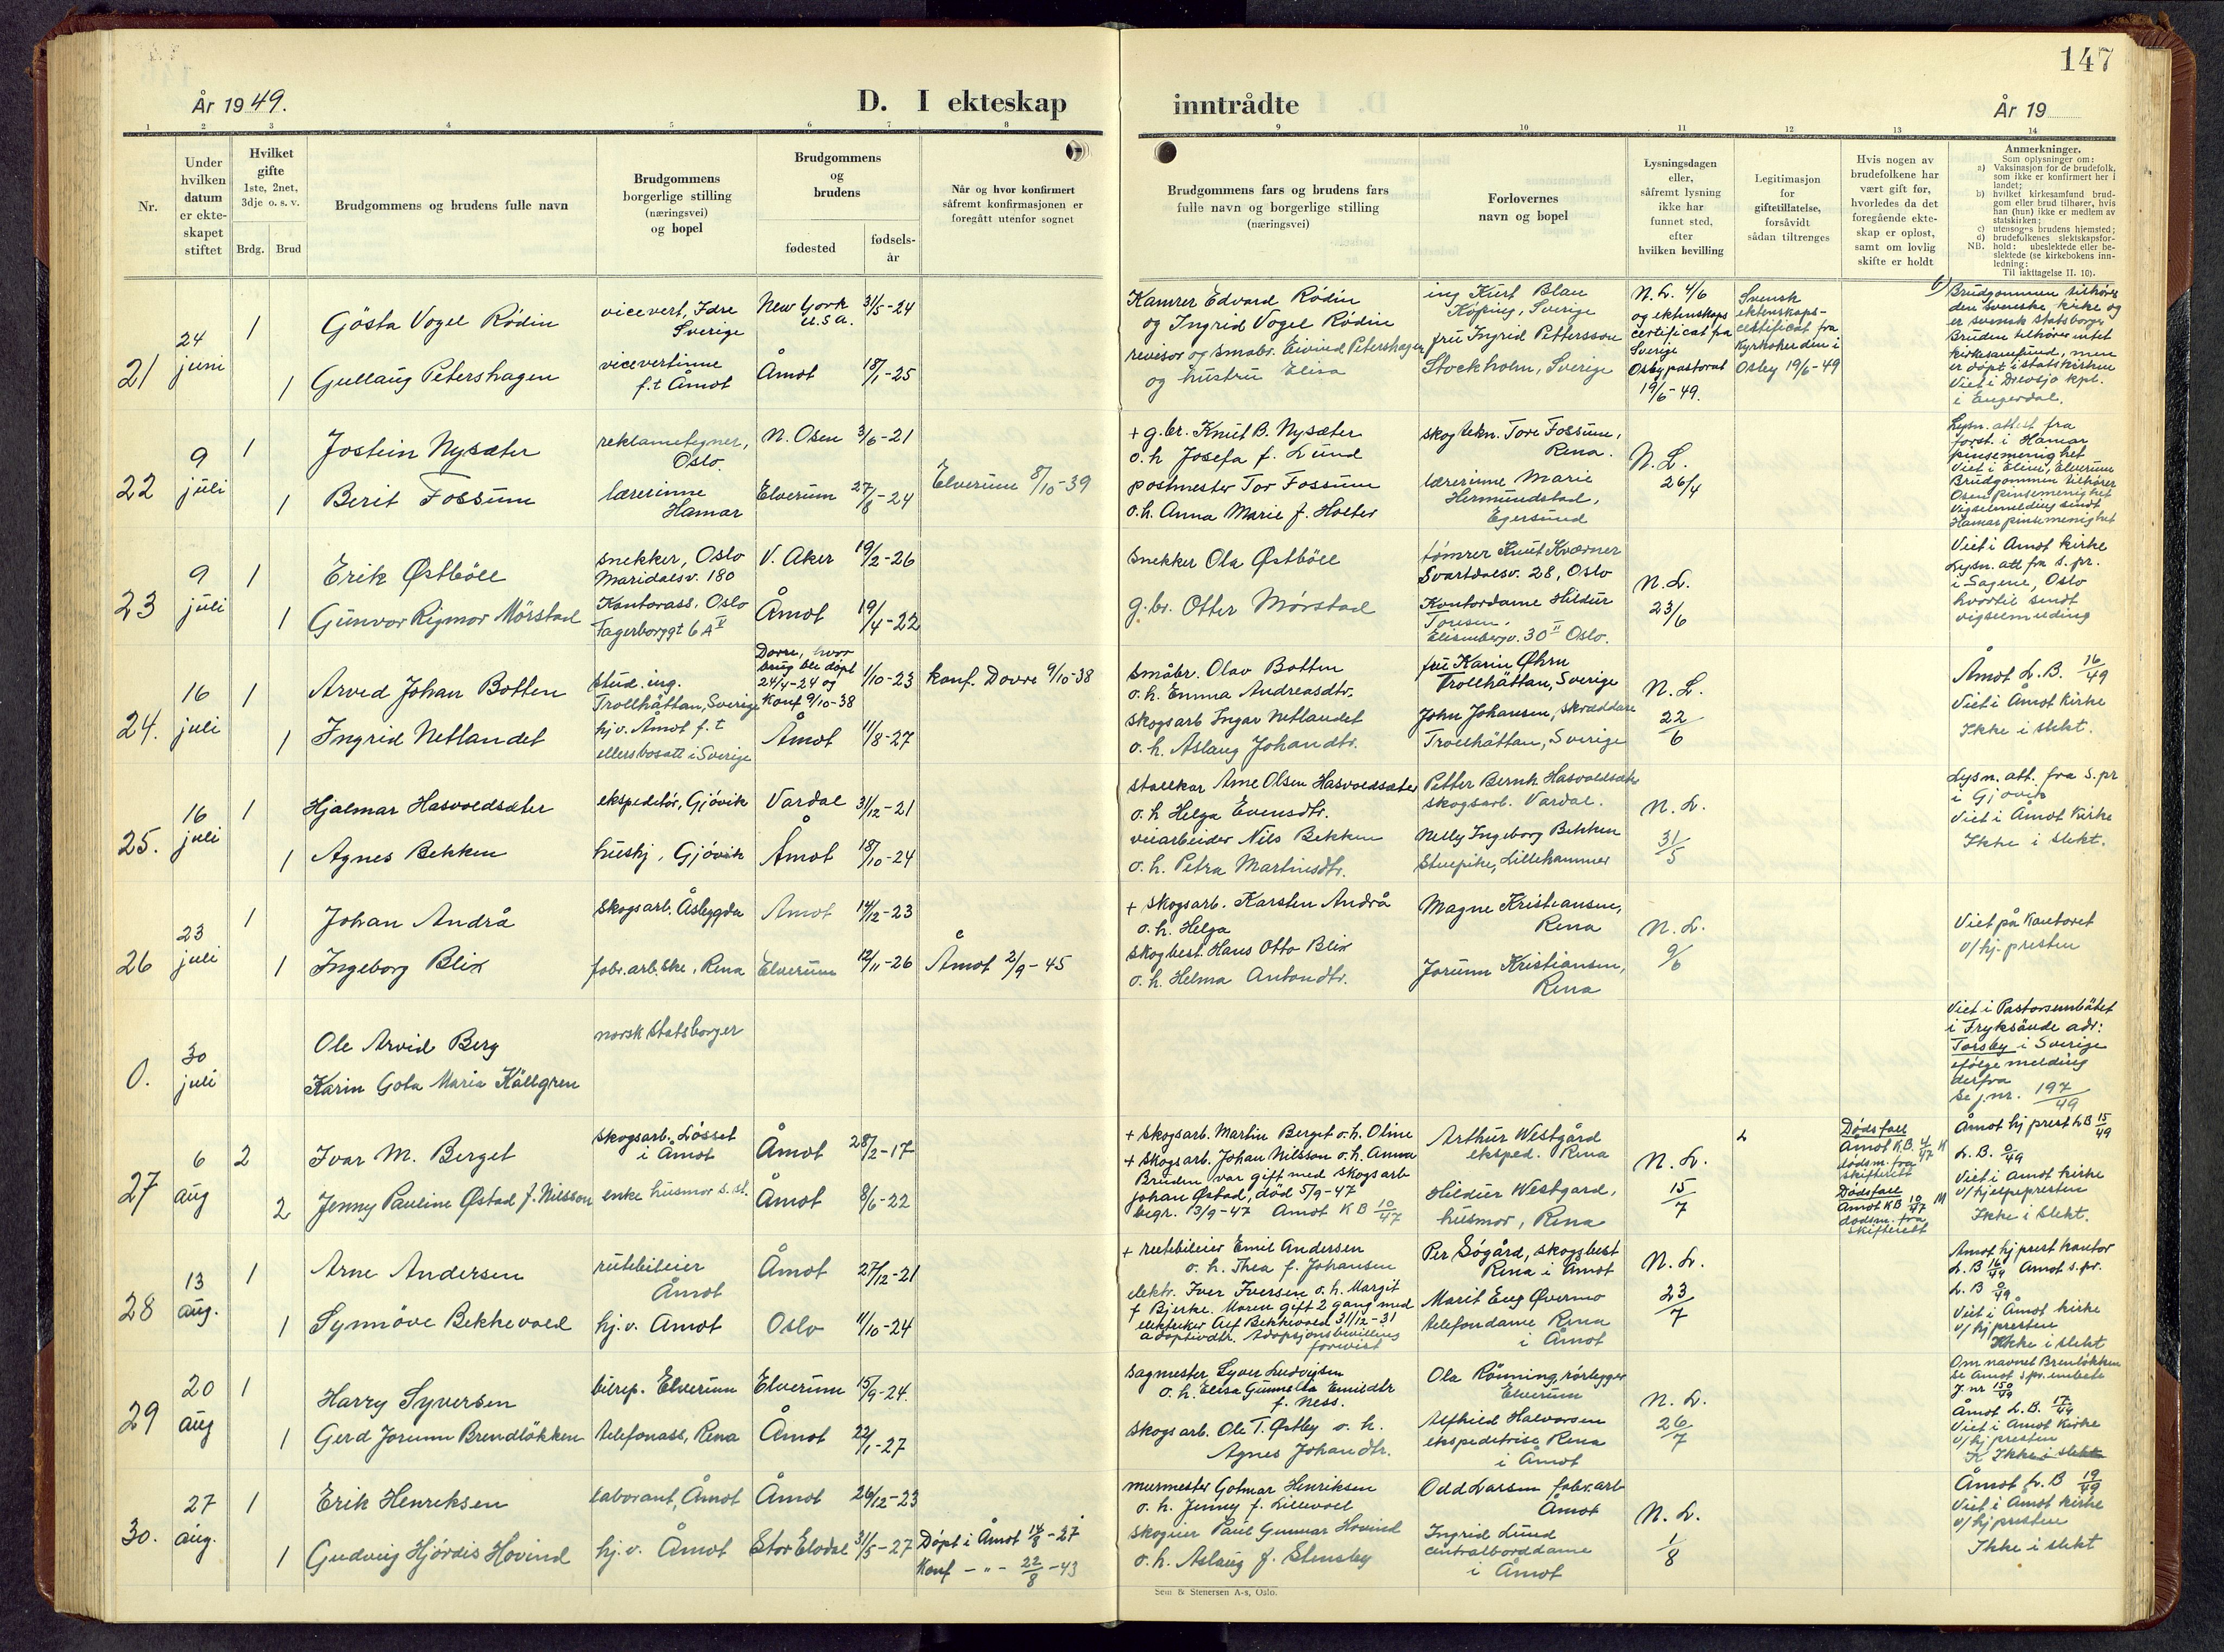 147
År 1949.
D. I ekteskap
inntrådte
År 19
1 2 3 4 5 6 7 8
9 10 11 12 13 14
Nr.
Under
hvilken
datum
er ekte-
skapet
stiftet
Hvilket
gifte
1ste, 2net,
3dje o. s. v.
Brdg. Brud
Brudgommens og brudens fulle navn
Brudgommens
borgerlige stilling
(næringsvei)
og bopel
Brudgommens
og
brudens
fødested
fødsels-
år
Når og hvor konfirmert
såfremt konfirmasjonen er
foregått utenfor sognet
Brudgommens fars og brudens fars
fulle navn og borgerlige stilling
(næringsvei)
Forlovernes
navn og bopel
Lysningsdagen
eller,
såfremt lysning
ikke har
funnet sted,
efter
hvilken bevilling
Legitimasjon
for
giftetillatelse,
forsåvidt
sådan tiltrenges
Hvis nogen av
brudefolkene har
vært gift før,
hvorledes da det
foregående ekte-
skap er opløst,
samt om lovlig
skifte er holdt
Anmerkninger.
Som oplysninger om:
a) Vaksinasjon for de brudefolk,
som ikke er konfirmert her i
landet;
b) hvilket kirkesamfund brud-
gom eller brud tilhører, hvis
han (hun) ikke er medlem av
statskirken;
c) utensogns brudens hjemsted;
d) brudefolkenes slektskapsfor-
hold: ubeslektede eller be-
slektede (se kirkebokens inn-
ledning:
NB.
Til iakttagelse II. 10).
21
24
juni
1
Gösta Vogel Rödin
vicevert, Idre
Sverige
New York
U.S.A.
31/5-24
1
Gullaug Petershagen
vicevertinne
f.t Åmot
Åmot
18/1-25
Kamrer Edvard Rödin
og Ingrid Vogel Rödin
revisor og småbr. Eivind Petershagen
og hustru Elisa
ing Kurt Blau
Köping, Sverige
fru Ingrid Pettersson
Stockholm, Sverige
N.L. 4/6
og ektenskaps
certificat fra
Sverige
Osby pastorat
19/6-49.
Svensk
ektenskaps-
certificat fra
Kyrkoherden i
Osby 19/6-49
Brudgommen tilhører
den Svenske kirke og
er svensk statsborger
Bruden tilhører intet
kirkesamfund, men
er døpt i statskirken
Viet i Drevsjø kpl.
i Engerdal.
22
9
juli
1
Jostein Nysæter
reklametegner,
Oslo.
N. Osen
3/6-21
1
Berit Fossum
lærerinne
Hamar
Elverum
27/8-24
Elverum 8/10-39
+ g.br. Knut B. Nysæter
o.h Josefa f. Lund
postmester Tor Fossum
o.h. Anna Marie f. Holter
skogtekn. Tore Fossum,
Rena.
lærerinne Marie
Hermundstad,
Egersund
N.L.
26/4
Lysn. attest fra
forst. i Hamar
pinsemenighet
Viet i Elim, Elverum
Brudgommen tilhører
Osen pinsemenighet
Vigselmelding sendt
Hamar pinsemenighet
23
9
juli
1
Erik Østböll
snekker, Oslo
Maridalsv. 180
V. Aker
19/2-26
1
Gunvor Rigmor Mörstad
Kontorass. Oslo
Fagerborggt 6A II
Åmot
19/4-22
snekker Ola Østböll
g.br. Otter Mørstad
tømrer Knut Kværner
Svartdalsv. 28, Oslo
Kontordame Hildur
Elisenbergv. 30 II Oslo.
N.L.
23/6
Viet i Åmot kirke
Lysn. att fra s.pr.
i Sagene, Oslo
hvortil sendt
vigselmelding
24.
16
juli
1
Arvid Johan Botten
stud. ing.
Trollhättan, Sverige
Dovre, hvor
brug ble döpt
24/4-24 og
Konf 9/10-38
1/10-23
konf. Dovre 9/10-38
1
Ingrid Netlandet
hj.v. Åmot f.t
ellers bosatt i Sverige
Åmot
11/8-27
småbr. Olav Botten
o.h. Emma Andreasdtr.
skogsarb Ingar Netlandet
o.h. Aslaug Johandtr.
fru Karin Öhrn
Trollhättan, Sverige
John Johansen, skræddare
Trollhättan, Sverige
N.L.
22/6
Åmot L.B. 16/49
Viet i Åmot kirke
Ikke i slekt.
25.
16
juli
1
Hjalmar Hasvoldsæter
ekspeditør, Gjøvik
Vardal
31/12-21
1
Agnes Bekken
hushj, Gjøvik
Åmot
18/10-24
stallkar Arne Olsen Hasvoldsæter
o.h Helga Evensdtr.
veiarbeider Nils Bekken
o.h. Petra Martinsdtr.
Petter Bernh. Hasvoldsæter
skogsarb. Vardal.
Nelly Ingeborg Bekken
Stuepike, Lillehammer
N.L.
31/5
Lysn. att. fra s.pr
i Gjøvik
Viet i Åmot Kirke
Ikke i slekt.
26
23
juli
1
Johan Andrå
skogsarb. Åsbygda
Åmot
14/12-23
1
Ingeborg Blix
fabr.arb.ske, Rena
Elverum
12/11-26
Åmot 2/9-45
+ skogsarb. Karsten Andrå
o.h. Helga
skogbest. Hans Otto Blix
o.h. Helma Antondtr.
Magne Kristiansen,
Rena
Jorunn Kristiansen,
Rena
N.L.
9/6
Viet på kontoret
v/hj. presten
0.
30
juli
Ole Arvid Berg
norsk statsborger
Karin Gota Maria Källgren
Viet i Pastorsembätet
i Fryksände adr:
Torsby i Sverige
ifølge melding
derfra
Se j.nr. 197/49
27
6
aug
2
Ivar M. Berget
skogsarb. Løsset
i Åmot
Åmot
28/2-17
2
Jenny Pauline Østad f. Nilsson
enke husmor s.st.
Åmot
8/6-22
+ skogsarb. Martin Berget o.h. Oline
+ skogsarb. Johan Nilsson o.h. Anna
Bruden var gift med skogsarb
Johan Østad, død 5/9-47
begr. 13/9-47 Åmot KB 10/47
Arthur Westgård
eksped. Rena
Hildur Westgård,
husmor, Rena
N.L.
15/7
Dødsfall
Åmot K.B. 4/47 K
dødsm. fra
skifterett
Dødsfall
Åmot KB 10/47 M
dødsm. fra
skifterett
Åmot hj prest LB 15/49
L.B. 8/49
Viet i Åmot kirke
v/hjelpepresten
Ikke i slekt.
28
13
aug.
1
Arne Andersen
rutebileier
Åmot
Åmot
27/12-21
1
Synnöve Bekkevold
hj.v. Åmot
Oslo
11/10-24
+ rutebileier Emil Andersen
o.h. Thea f. Johansen
elektr. Iver Iversen o.h. Margit
f Bjerke. Moren gift 2 gang med
elektriker Alf Bekkevold 31/12-31
adoptivdtr. Adopsjonsbevilling
forevist
Per Søgård, skogsbest
Rena i Åmot
Marit Eng Øvermo
telefondame Rena
i Åmot
N.L.
23/7
Åmot hj prest kontor
L.B 16/49 Åmot s.pr.
L.B 9/49
Viet i Åmot kirke
v/hj presten
Ikke i slekt
29
20
aug
1
Harry Syversen
bilrep. Elverum
Elverum
15/9-24.
1
Gerd Jorunn Brendløkken
telefonass, Rena
Åmot
22/1-27
sagmester Syver Ludvigsen
o.h. Elisa Gunnella Emildtr
f. Ness.
skogsarb. Ole T. Østby o.h.
Agnes Johandtr.
Ola Rønning, rørlegger
Elverum
Alfhild Halvorsen
ekspeditrise Rena
i Åmot
N.L.
26/7
Om navnet Brenløkken
se Åmot s.pr. embete
J.nr 150/49
Åmot L.B. 17/49
Viet i Åmot Kirke
v/hj presten
Ikke i slekt
30.
27
aug.
1
Erik Henriksen
laborant, Åmot
Åmot
26/12-23
1
Gudveig Hjördis Hovind
hj.v. Åmot
Stor Elvdal
31/5-27
Döpt i Åmot 14/8-27
Konf -"- 22/8-43
murmester Gotmar Henriksen
o.h. Jenny f. Lillevold
skogeier Paul Gunnar Hovind
o.h. Aslaug f. Stensby
Odd Larsen fabr.arb
Åmot
Ingrid Lund
centralborddame
i Åmot
N.L.
1/8
Åmot L.B 19/49
Viet i Åmot kirke
v/hj presten
Ikke i slekt
Sem & Stenersen A-s, Oslo.